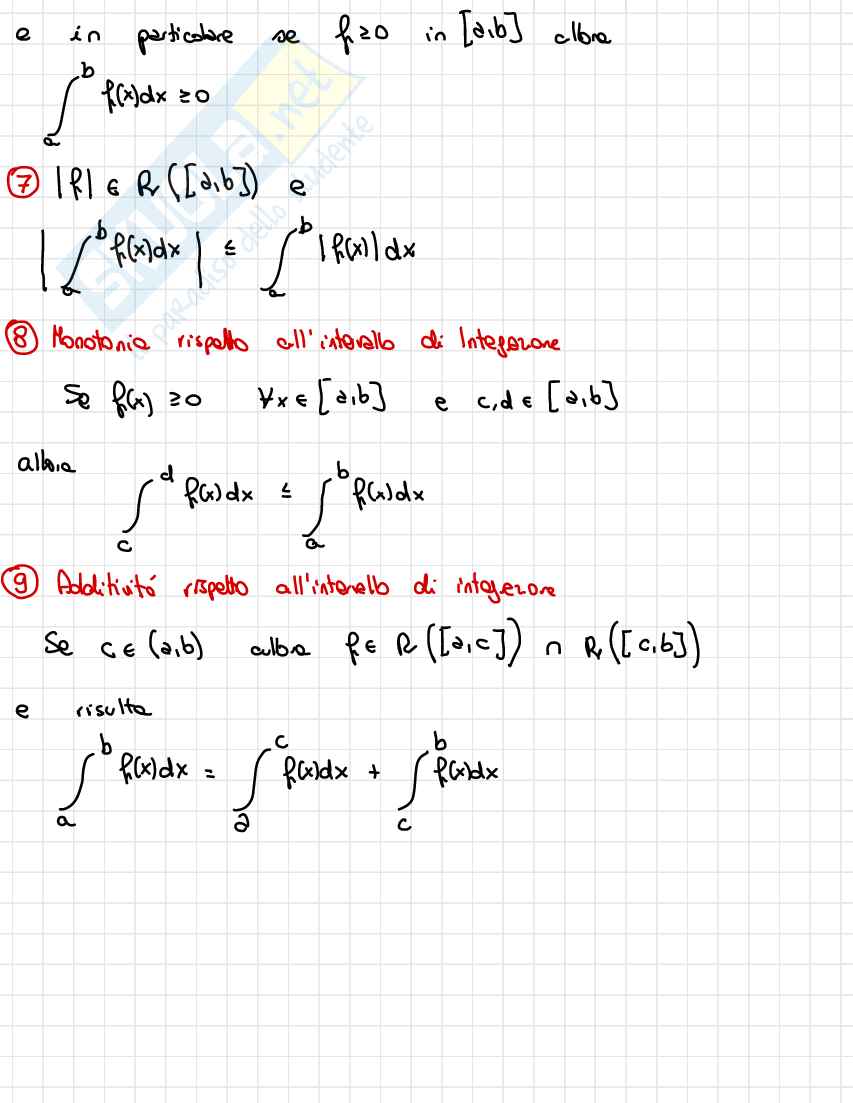 e in particolare se f ≥ 0 in [a,b] allora
∫_a^b f(x)dx ≥ 0
⑦ |f| ∈ R([a,b]) e
|∫_a^b f(x)dx| ≤ ∫_a^b |f(x)|dx
⑧ Monotonia rispetto all'intervallo di Integrazione
Se f(x) ≥ 0 ∀x ∈ [a,b] e c,d ∈ [a,b]
allora
∫_c^d f(x)dx ≤ ∫_a^b f(x)dx
⑨ Additivitá rispetto all'intervallo di integrazione
Se c ∈ (a,b) allora f ∈ R([a,c]) ∩ R([c,b])
e risulta
∫_a^b f(x)dx = ∫_a^c f(x)dx + ∫_c^b f(x)dx
SKUOLA.net
il paradiso dello studente